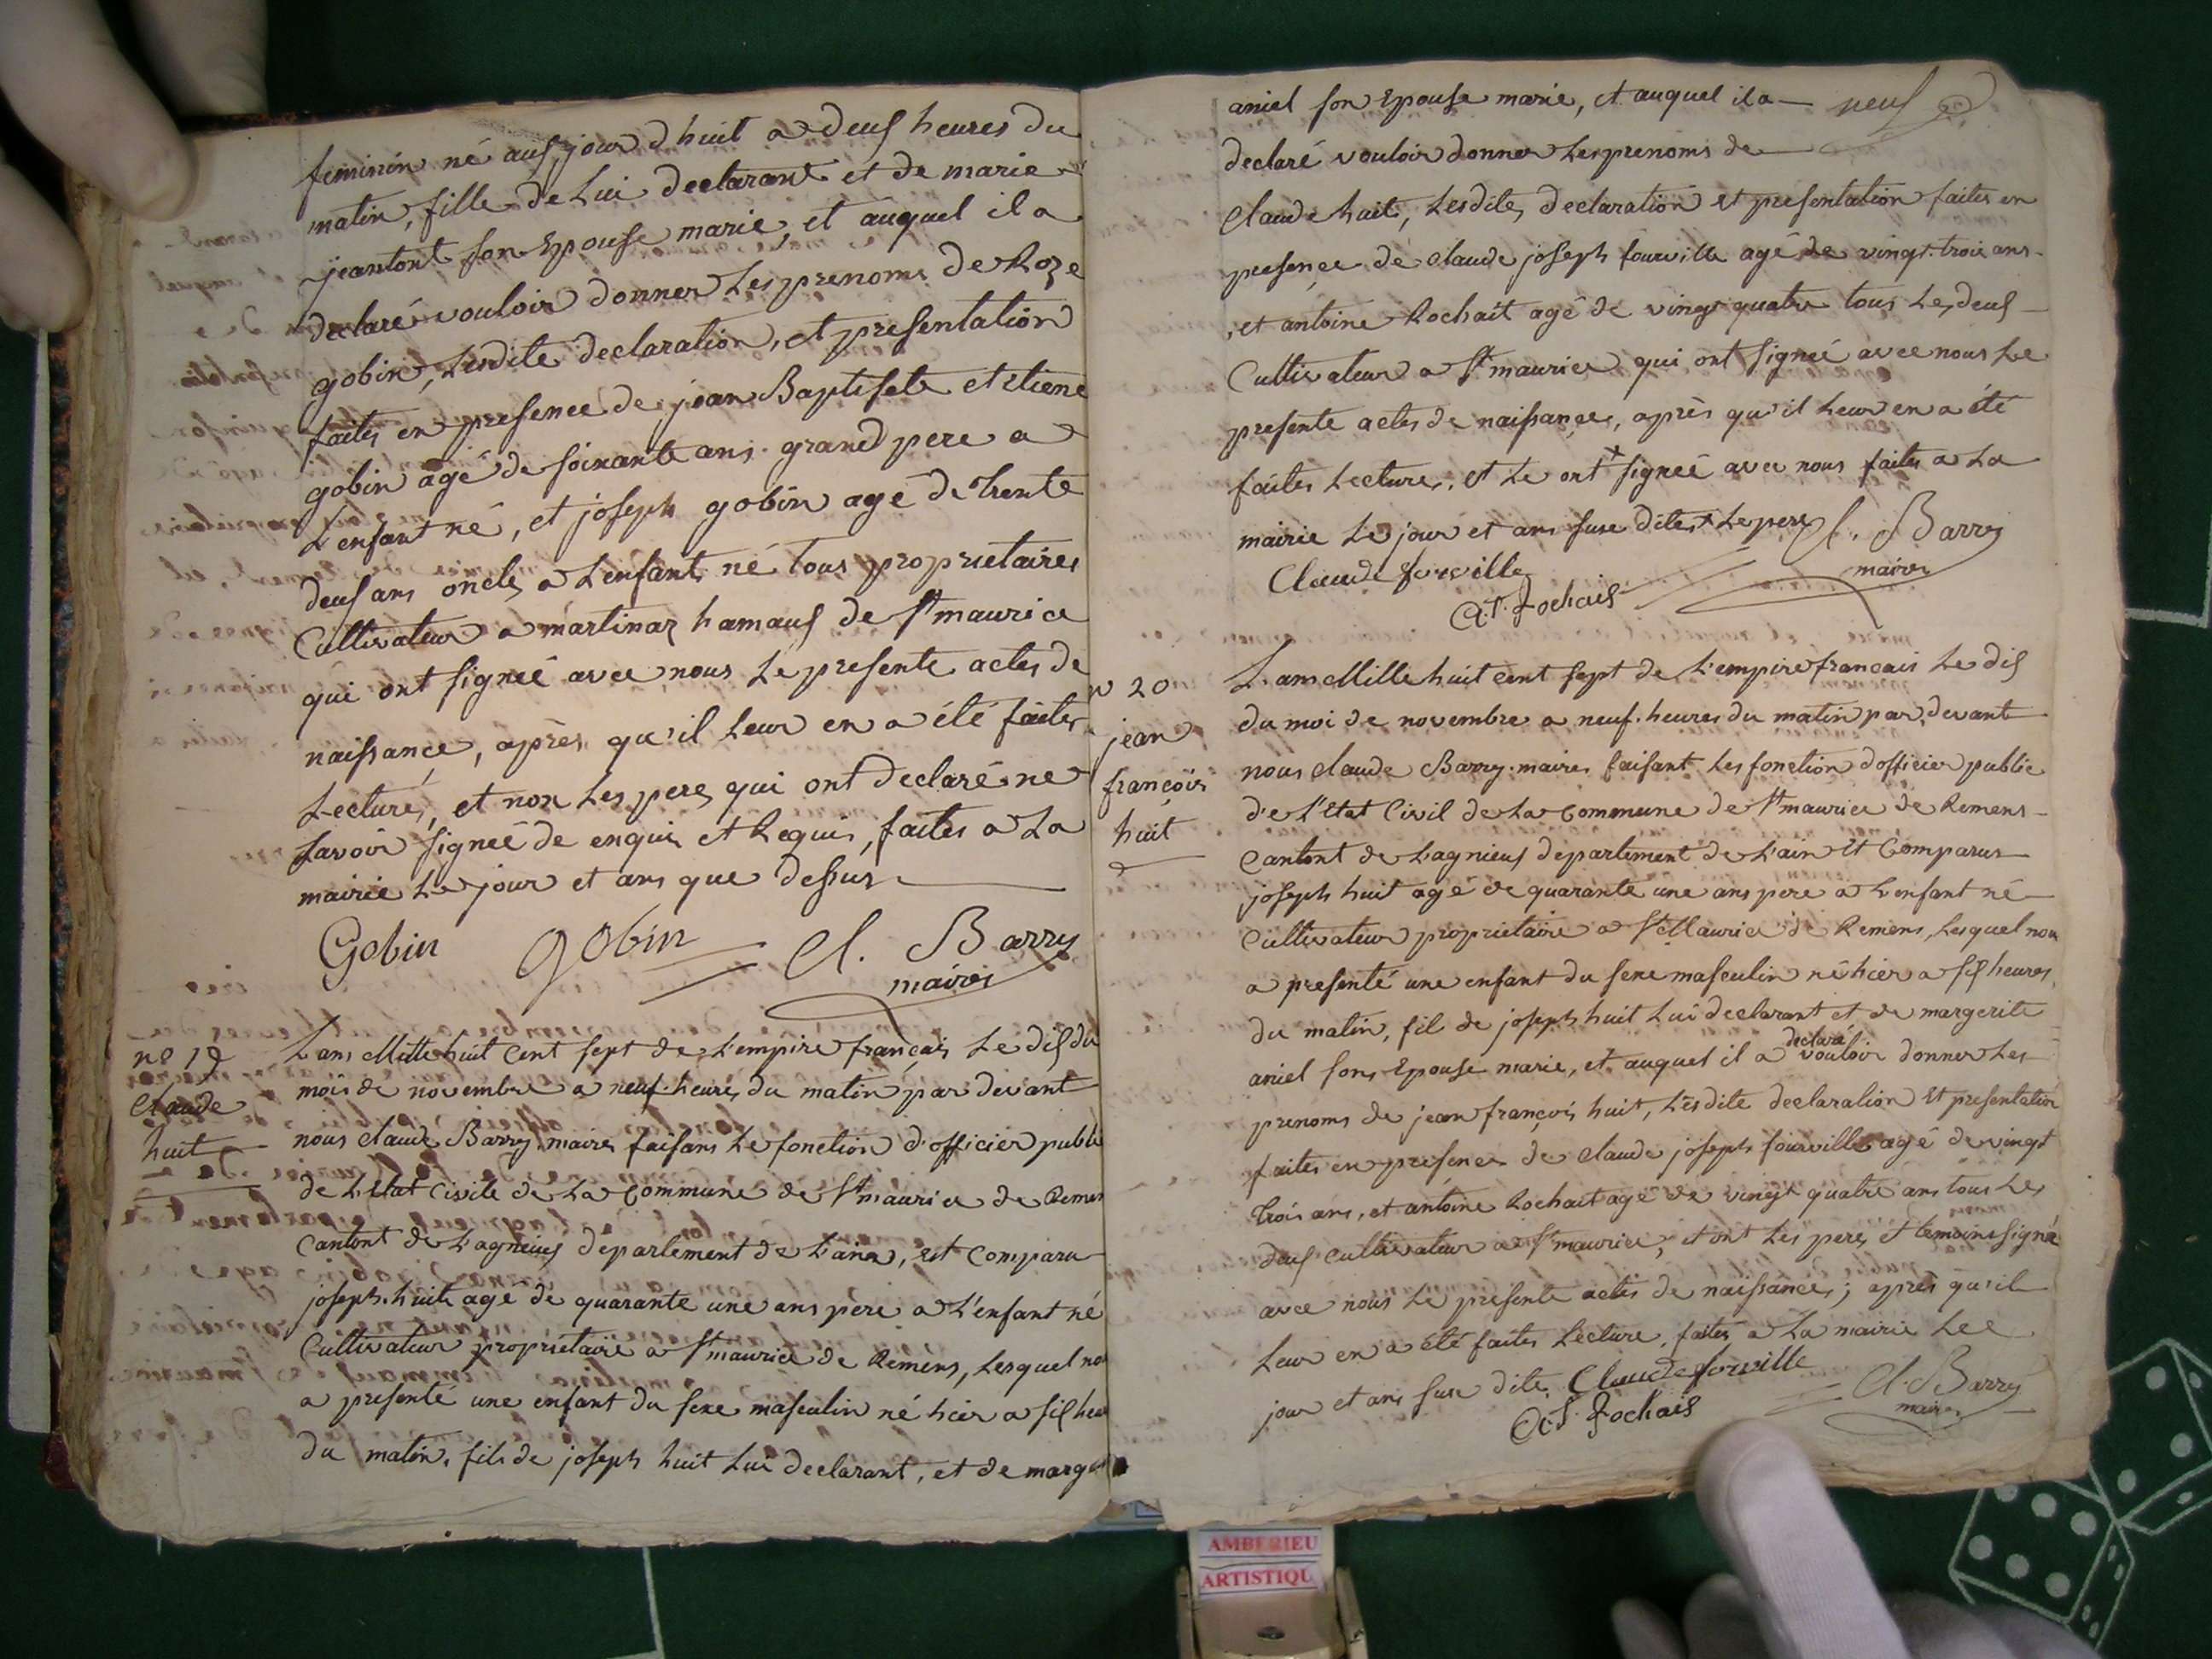 feminin né aus jour d huit a deus heures du
matin, fille de lui declarant et de marie
jeantont son Epouse marie, et auquel il a
declaré vouloir donner les prenoms de Roze
gobin, lesdite declaration, et presentation
faites en presence de jean Baptisete etiene
gobin agé de soixante ans grand pere a
l'enfant né, et joseph gobin agé de trente
deus ans oncles a l'enfant né tous proprietaires
Cultivateur a martinaz hamaus de St maurice
qui ont signeé avec nous le presente actes de
naissance, après qu'il leur en a été faites
Lecture, et non les peres qui ont declaré ne
savoir signeé de enquis et Requis, faites a la
mairie le jour et ans que dessus
Gobin gobin Cl. Barry
maires
no 19
Claude
huit
L ans Mille huit Cent sept de l'empire français le dis du
mois de novembre a neuf heures du matin par devant
nous claude Barry maires faisans le fonction d'officier publi
de l'Etat Civile de la Commune de St maurice de Remens
Cantont de Lagnieus departement de L'ain, est Comparu
joseph huit agé de quarante une ans pere a l'enfant né
Cultivateur proprietaire a St maurice de Remens, lesquel nou
a presenté une enfant du sexe masculin né hier a sis heur
du matin, fils de joseph huit lui declarant, et de marg
neuf
aniel son Epouse marie, et auquel il a
declaré vouloir donner les prenoms de
Claude huit, lesdite declaration et presentation faites en
presence de claude joseph fourville agé de vingt trois ans
et antoine Rochait agé de vingt quatre tous les deus
Cultivateur a St maurice qui ont signeé avec nous le
presente actes de naissances, après qu'il leur en a été
faites Lectures, et le ont + signeé avec nous faites a la
mairie le jour et ans suse dites + le peres Cl. Barry
maires
Claude forville
At. Rochais
n 20
jean
françois
huit
L'ans Mille huit Cent sept de L'empire francais le dis
du moi de novembre a neuf heures du matin par devant
nous claude Barry maires faisant les fonction d'officier public
de l'Etat Civil de la Commune de St maurice de Remens
Cantont de Lagnieus departement de L'ain Et Comparus
joseph huit agé de quarante une ans pere a l'enfant né
Cultivateur proprietaire a St Maurice de Remens, lesquel nou
a presenté une enfant du sexe masculin né hier a sis heures
du matin, fil de joseph huit lui declarant et de margerite
aniel sons Epouse marie, et auquel il a declaré vouloir donner les
prenoms de jean françois huit, lesdite declaration Et presentation
faites en presence de claude joseph fourville agé de vingt
trois ans, et antoine Rochait agé de vingt quatre ans tous les
deus cultivateur a St maurice, et ont les peres et temoins signé
avec nous le presente actes de naissances, après qu'il
leur en a été faites lecture, faites a la mairie lee
jour et ans suse dite. Claude forville
At. Rochais
Cl. Barry
maires
AMBERIEU
ARTISTIQU